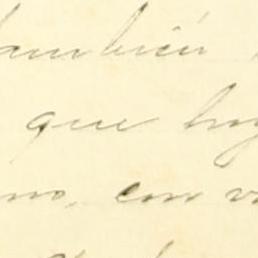 también
que hoy
no, con v